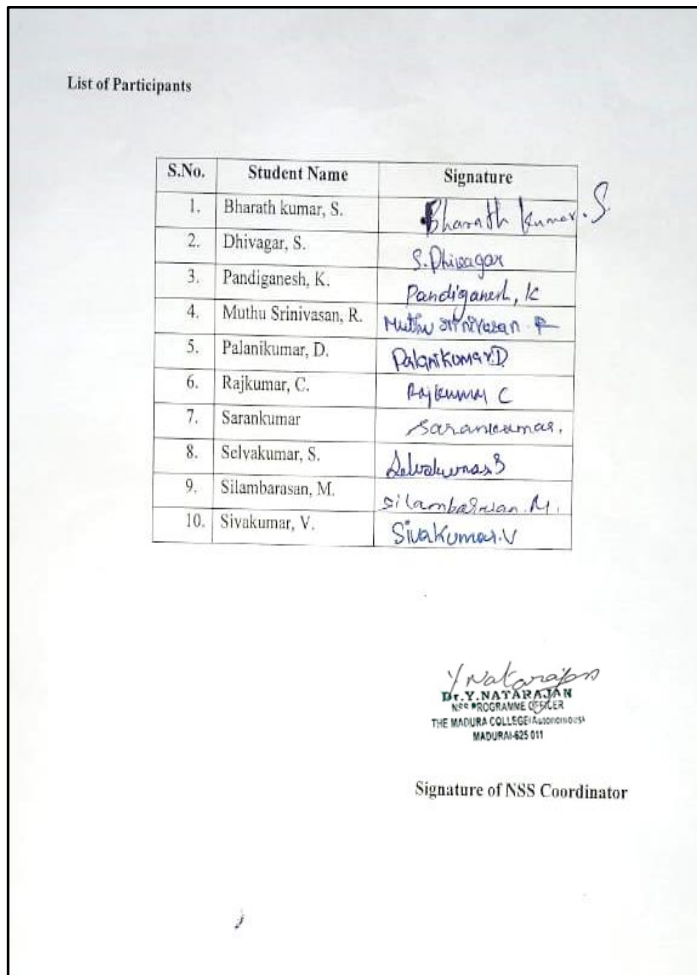 List of Participants
S.No. Student Name Signature
1. Bharath kumar, S. Bharath kumar. S.
2. Dhivagar, S. S. Dhivagar
3. Pandiganesh, K. Pandiganesh, K
4. Muthu Srinivasan, R. Muthu Srinivasan. R
5. Palanikumar, D. Palanikumar.D
6. Rajkumar, C. Rajkumar C
7. Sarankumar Sarankumar.
8. Selvakumar, S. Selvakumar S
9. Silambarasan, M. Silambarasan. M.
10. Sivakumar, V. Sivakumar.V
Y Natarajan
Dr.Y.NATARAJAN
NSS PROGRAMME OFFICER
THE MADURA COLLEGE(Autonomous)
MADURAI-625 011
Signature of NSS Coordinator